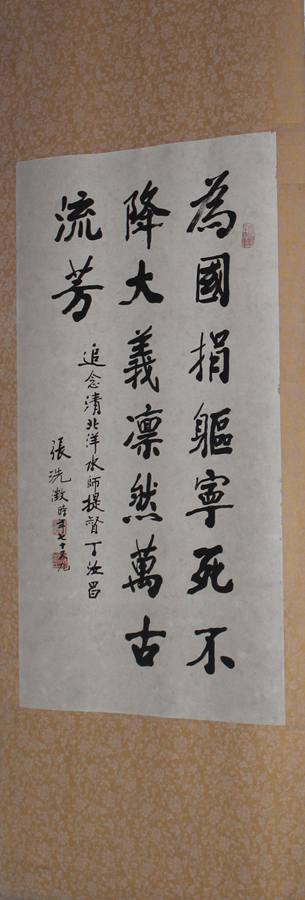 為國捐軀寧死不
降大義凛然萬古
流芳
追念清北洋水師提督丁汝昌
張洗澂時年七十五